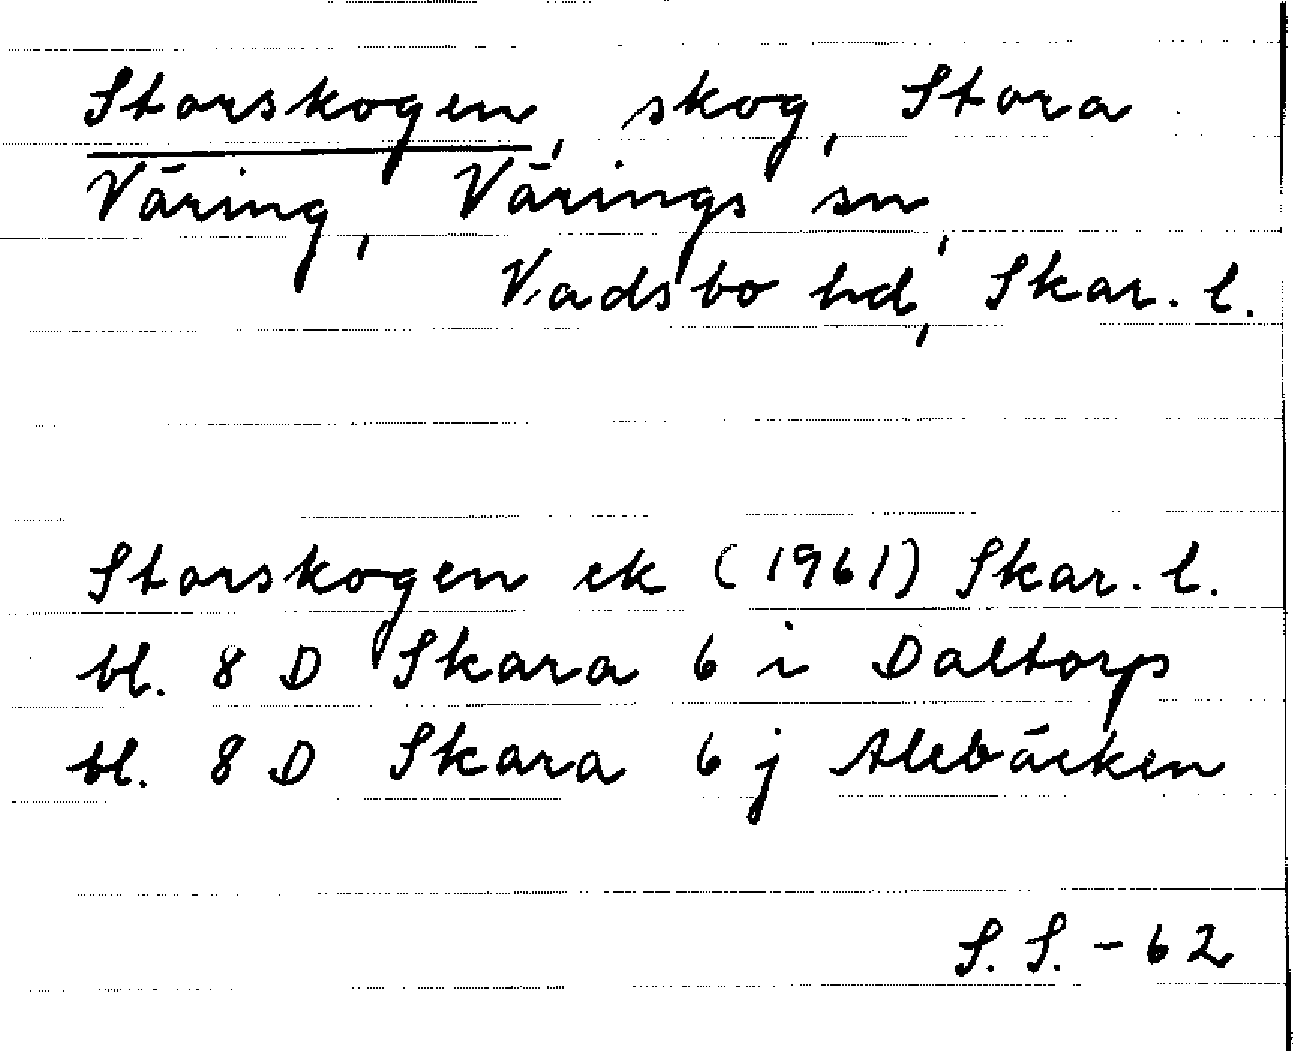 Storskogen, skog, Stora
Väring, Värings sn,
Vadsbo hd, Skar. l.
Storskogen ek (1961) Skar. l.
bl. 8 D Skara 6 i Daltorp
bl. 8 D Skara 6 j Alebäcken
S. S. - 62